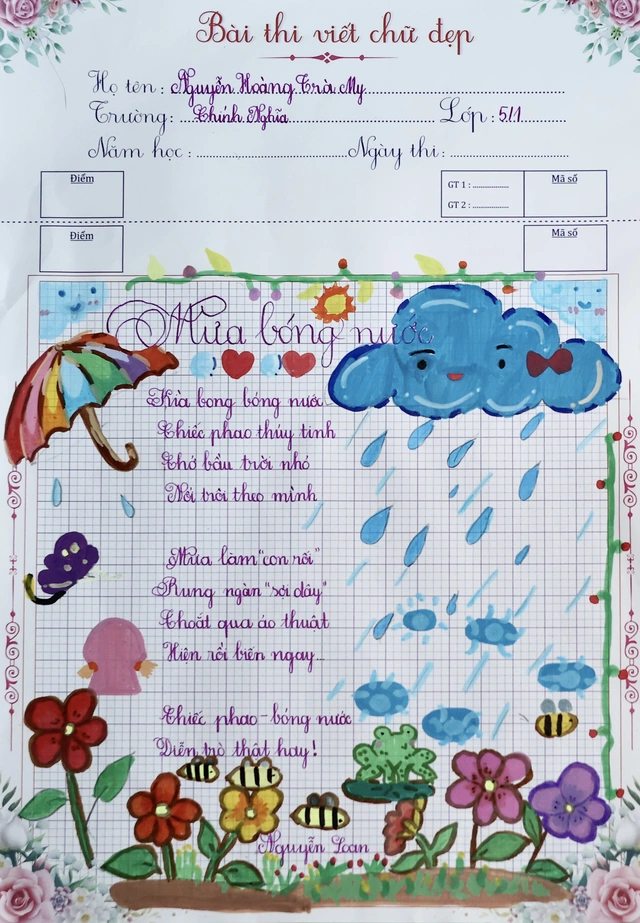 Bài thi viết chữ đẹp
Họ tên: Nguyễn Hoàng Trà My
Trường: Chính Nghĩa Lớp: 5/1
Năm học: Ngày thi:
Điểm GT 1: Mã số
GT 2:
Điểm Mã số
Mưa bóng nước
Kìa bong bóng nước
Chiếc phao thủy tinh
Chở bầu trời nhỏ
Nổi trôi theo mình
Mưa làm "con rối"
Rung ngàn "sợi dây"
Thoắt qua ảo thuật
Hiện rồi biến ngay...
Chiếc phao - bóng nước
Diễn trò thật hay!
Nguyễn Loan